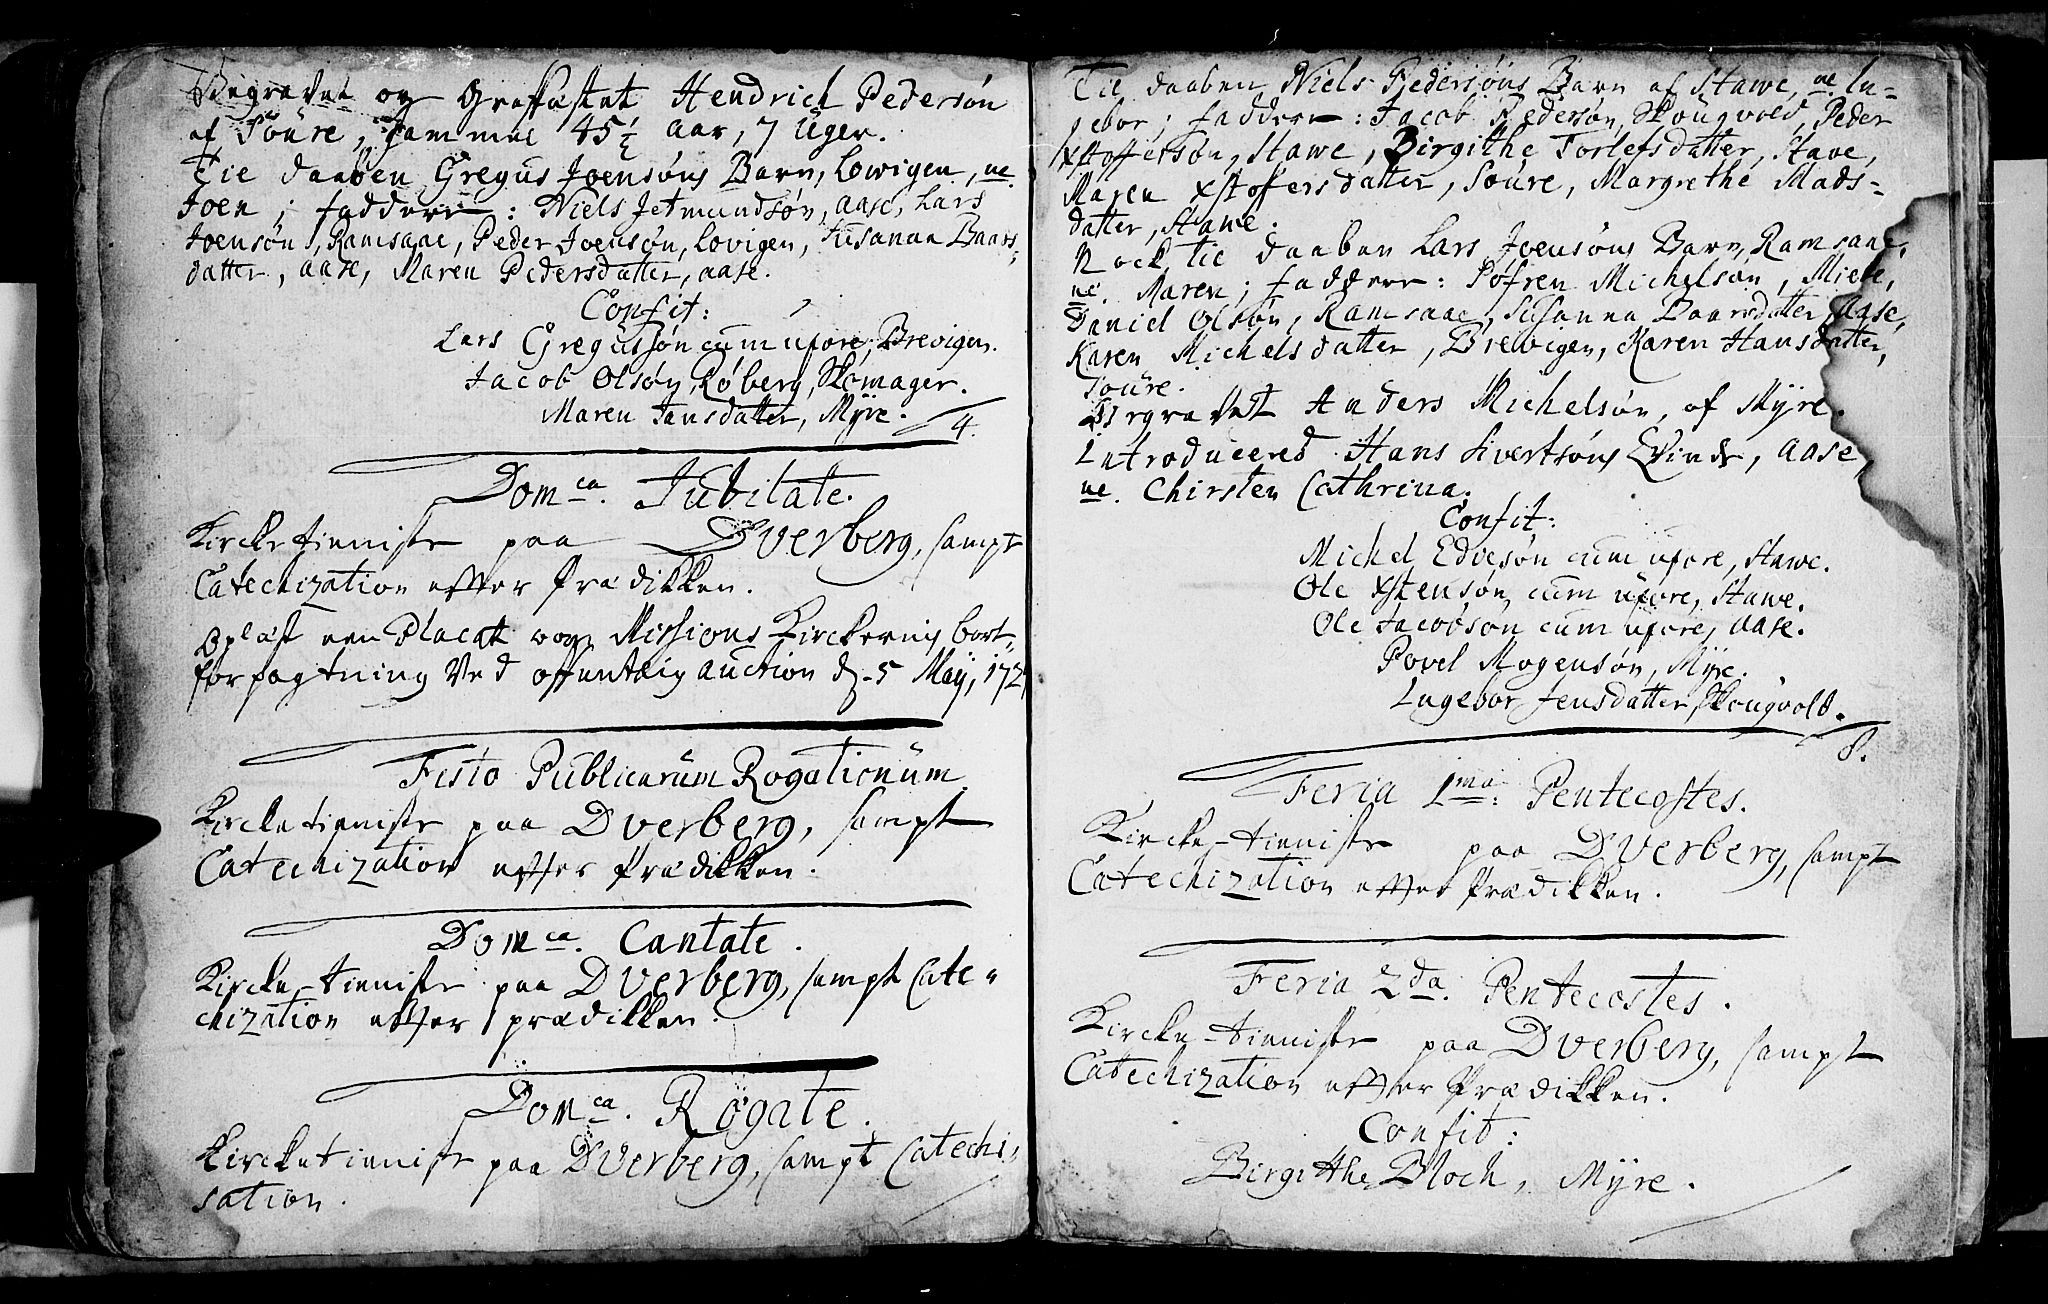 Begravet og Graffæstet Hendrich Pedersøn
af Soure, gammel 45½ aar, 7 Uger.
Til daaben Gregus Joensøns Barn, Lowigen, ne.
Joen; faddere: Niels Jetmundsøn, aase, Lars
Joensøn, Ramsaae, Peder Joensøn, Lovigen, Susanna Baars-
datter, aase, Maren Pedersdatter, aase.
Confit:
Lars Gregussøn cum uxore, Brevigen.
Jacob Olsøn, Røberg, Skomager.
Maren Jansdatter, Myre.
4.
Domca. Jubilate.
Kircketienniste paa Dverberg, sampt
Catechization effter Prædikken.
Oplæst een Placat om Missions Kirckernis bort-
forpagtning ved offentlig auction d. 5 Maij, 172
Festo Publicarum Rogationum
Kircketienniste paa Dverberg, sampt
Catechization effter Prædikken.
Domca. Cantate.
Kircke-tienniste paa Dverberg, sampt Cate-
chization effter prædikken.
Domca. Rogate.
Kircketienniste paa Dverberg, sampt Catechi-
sation.
Til daaben Niels Pedersøns Barn af Stawe, ne. In-
gebor; faddere: Jacob Pedersøn, Skougvold, Peder
Xstoffersøn, Stawe, Birgithe Torlefsdatter, Stave,
Maren Xstofersdatter, Soure, Margrethe Mads-
datter, Stawe.
Nock til daaben Lars Joensøns Barn, Ramsaae,
ne. Maren; faddere: Søfren Michelsøn, Miele,
Daniel Olsøn, Ramsaae, Susanna Baarsdatter, Aase,
Karen Michelsdatter, Brewigen, Karen Hansdatter,
Soure.
Begravet Anders Michelsøn, af Myre.
Introducered Hans Sivertsøns Qvinde, aase
ne. Chirsten Cathrina.
Confit:
Michel Edvesøn cum uxore, Stawe.
Ole Xstensøn cum uxore, Stawe.
Ole Jacobsøn cum uxore, aase.
Povel Mogensøn, Myre.
Ingebor Jensdatter, Skougvold.
8.
Feria 1ma: Pentecostes.
Kircke-tienniste paa Dverberg, sampt
Catechization effter Prædikken.
Feria 2da. Pentecostes.
Kircke-tienniste paa Dverberg, sampt
Catechization effter Prædikken.
Confit:
Birgithe Bloch, Myre.